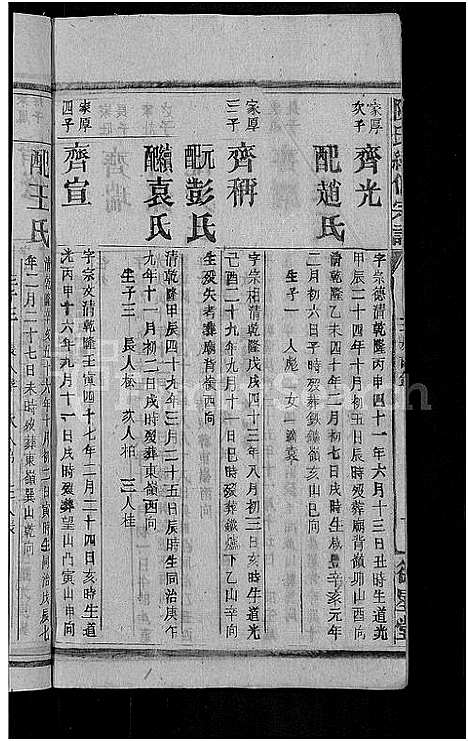 陳氏續修宗譜
家厚次子 齊光
字宗德清乾隆丙申四十一年六月十三日丑時生道光
甲辰二十四年十月初二日辰時歿葬廟背嶺卯山酉向
配趙氏
清乾隆乙未四十年二月初七日戌時生咸豐辛亥元年
二月初六日子時歿葬鉄嶺亥山巳向
生子一 人彪 女一 適袁
家厚三子 齊稱
字宗桂清乾隆戊戌四十三年八月初三日亥時生道光
己酉二十九年九月十一日歿葬鐵爐下乙山辛向
元配彭氏
生歿失考葬廟背嶺酉向
繼配袁氏
清乾隆甲辰四十九年三月二十五日辰時生同治庚午
九年十一月初二日歿葬東嶺酉向
生子三 長人松 次人柏 三人桂
家厚四子 齊宣
字宗文清乾隆壬寅四十七年二月二十四日亥時生道
光丙申十六年九月十一日戌時歿葬望山凸寅山申向
配王氏
清乾隆辛亥五十六年十月初二日寅時生同治戊辰七
年二月二十七日未時歿葬東嶺巽山乾向